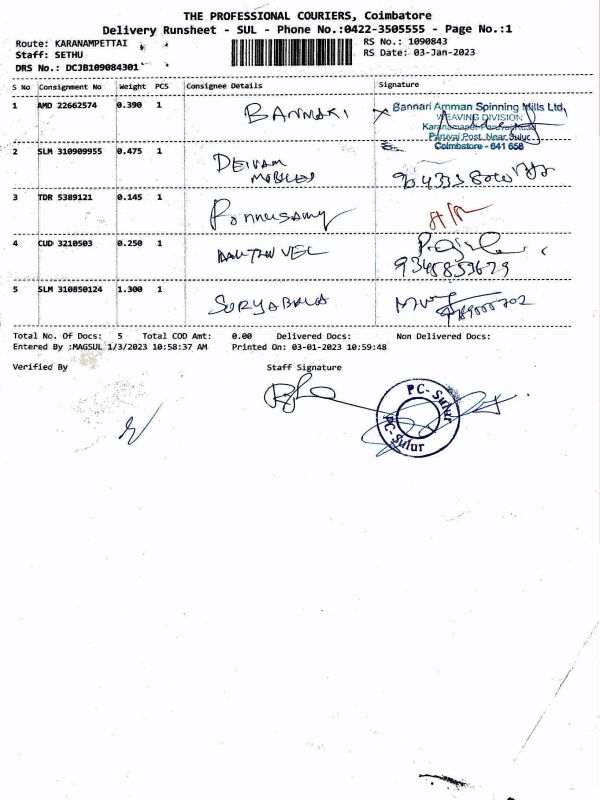 THE PROFESSIONAL COURIERS, Coimbatore
Delivery Runsheet - SUL - Phone No.:0422-3505555 - Page No.:1
Route: KARANAMPETTAI
Staff: SETHU
DRS No.: DCJB109084301
RS No.: 1090843
RS Date: 03-Jan-2023
S No Consignment No Weight PCS Consignee Details Signature
1 AMD 22662574 0.390 1 BANNARI
Bannari Amman Spinning Mills Ltd,
WEAVING DIVISION
Paruvai Post, Near Sulur
Coimbatore - 641 658
2 SLM 310909955 0.475 1 DEIVAM
MOBILES
3 TDR 5389121 0.145 1 Ponnusamy
4 CUD 3210503 0.250 1
9345853679
5 SLM 310850124 1.300 1 SURYABALA
Total No. Of Docs: 5 Total COD Amt: 0.00 Delivered Docs: Non Delivered Docs:
Entered By :MAGSUL 1/3/2023 10:58:37 AM Printed On: 03-01-2023 10:59:48
Verified By Staff Signature
PC-Sulur
PC-Sulur